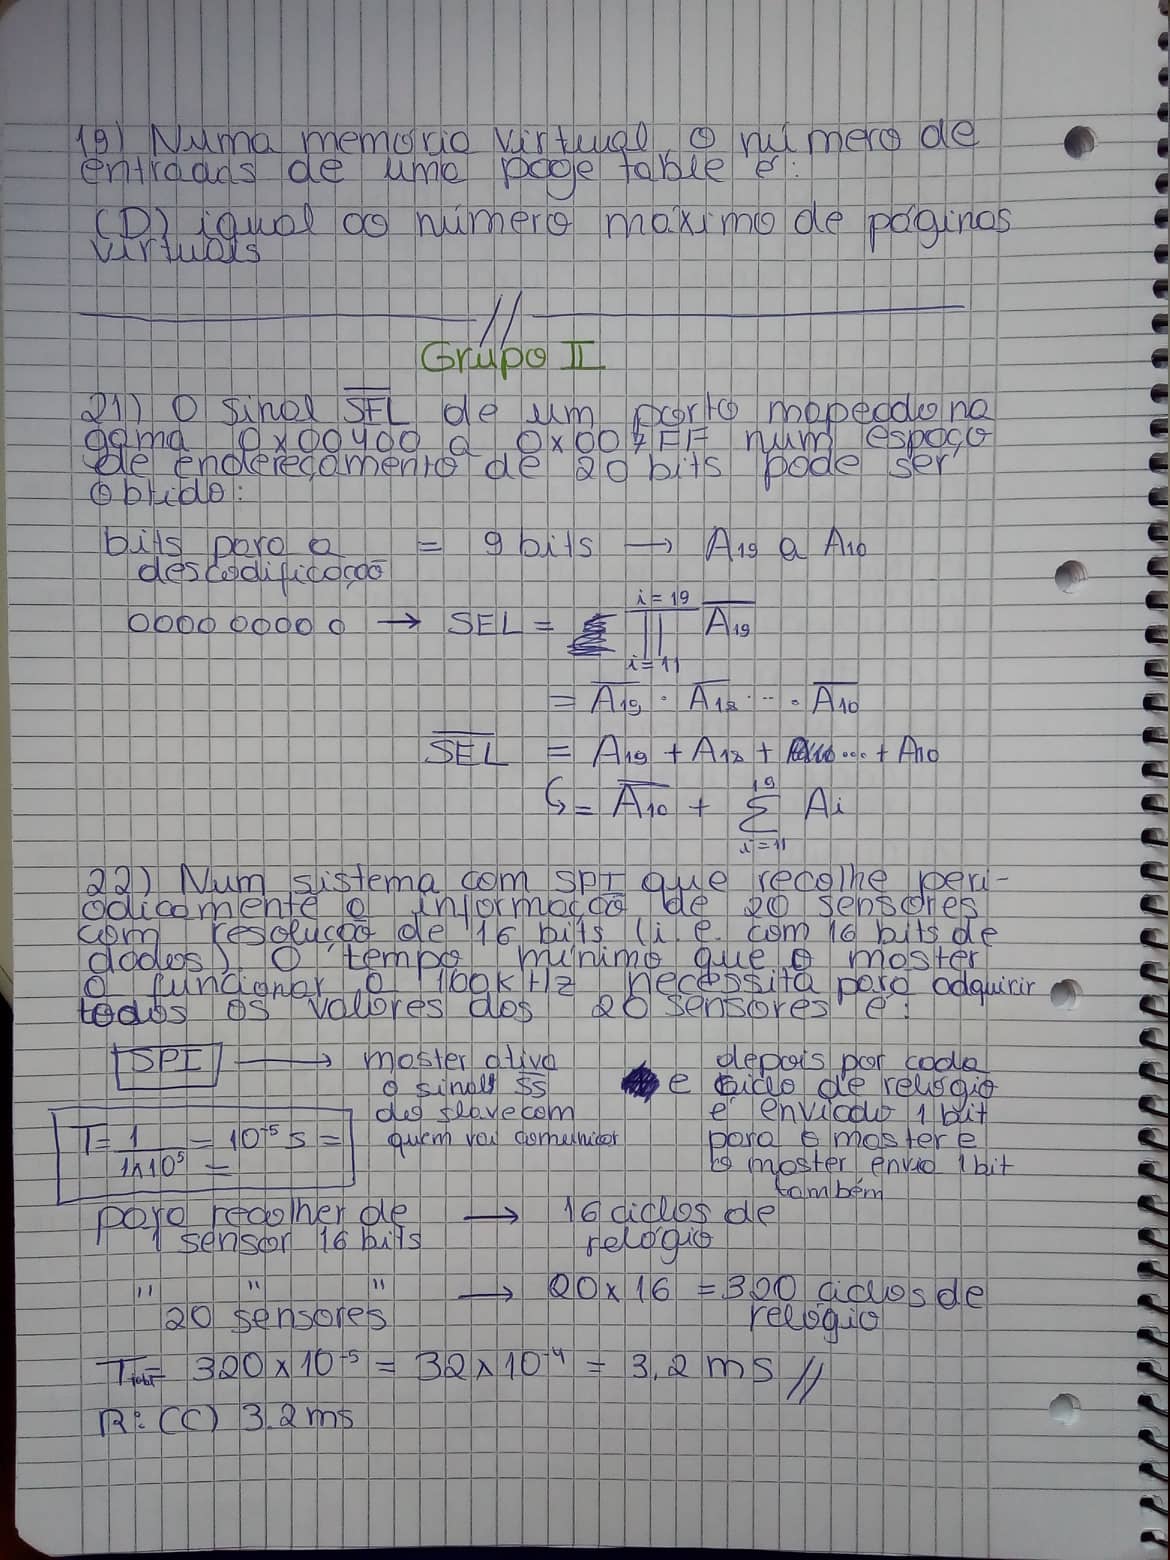 19) Numa memoria virtual, o número de
entradas de uma page table é:
(D) igual ao número maximo de páginas
virtuais
//
Grupo II
21) O sinal SEL de um porto mapeado na
gama 0x00400 a 0x007FF num espaço
de endereçamento de 20 bits pode ser
obtido:
bits para a = 9 bits → A19 a A10
descodificação
0000 0000 0 → SEL = ∏ i=19 i=11 A̅19
= A̅19 . A̅18 ... . A̅10
S̅E̅L̅ = A19 + A18 + ... + A10
↳ = A̅10 + Σ 19 i=11 Ai
22) Num sistema com SPI que recolhe peri-
odicamente a informação de 20 sensores
com resolução de 16 bits (i.e. com 16 bits de
dados), o tempo mínimo que o master
a funcionar a 100kHz necessita para adquirir
todos os valores dos 20 sensores é:
SPI → master ativa
o sinal S̅S̅
do slave com
quem vai comunicar
e depois por cada
ciclo de relógio
é enviado 1 bit
para o master e
o master envia 1 bit
também
T = 1/1x10⁵ = 10⁻⁵ s =
para recolher de → 16 ciclos de
1 sensor 16 bits relógio
" " " → 20 x 16 = 320 ciclos de
20 sensores relógio
Ttotal = 320 x 10⁻⁵ = 32 x 10⁻⁴ = 3,2 ms //
R: (C) 3.2 ms